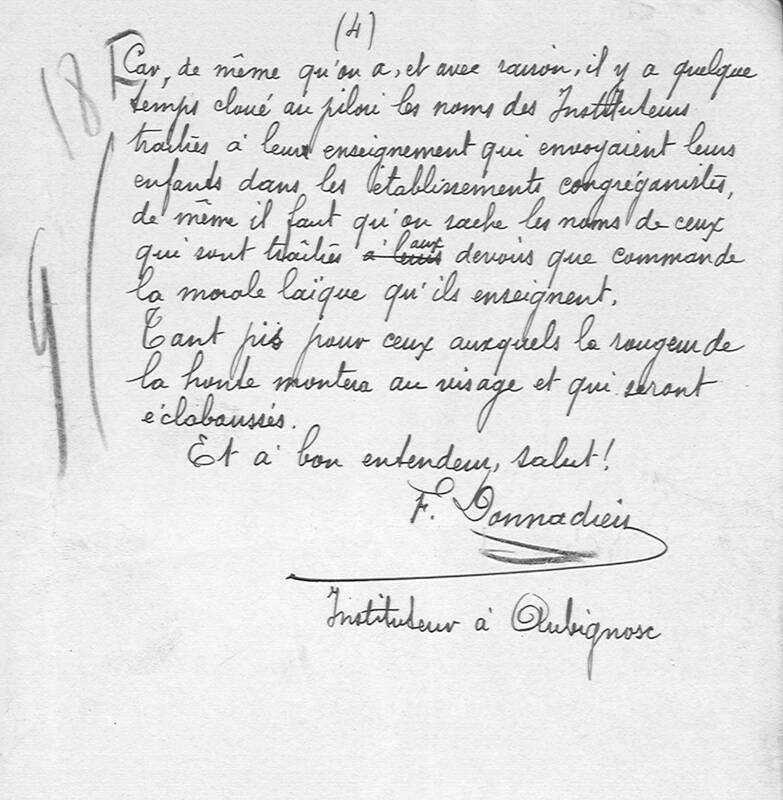 (4)
18 Car, de même qu'on a, et avec raison, il y a quelque
temps cloué au pilori les noms des Instituteurs
traîtres à leur enseignement qui envoyaient leurs
enfants dans les établissements congréganistes,
de même il faut qu'on sache les noms de ceux
qui sont traîtres à leurs aux devoirs que commande
la morale laïque qu'ils enseignent.
Tant pis pour ceux auxquels la rougeur de
la honte montera au visage et qui seront
éclaboussés.
Et à bon entendeur, salut!
F. Donnadieu
Instituteur à Aubignosc